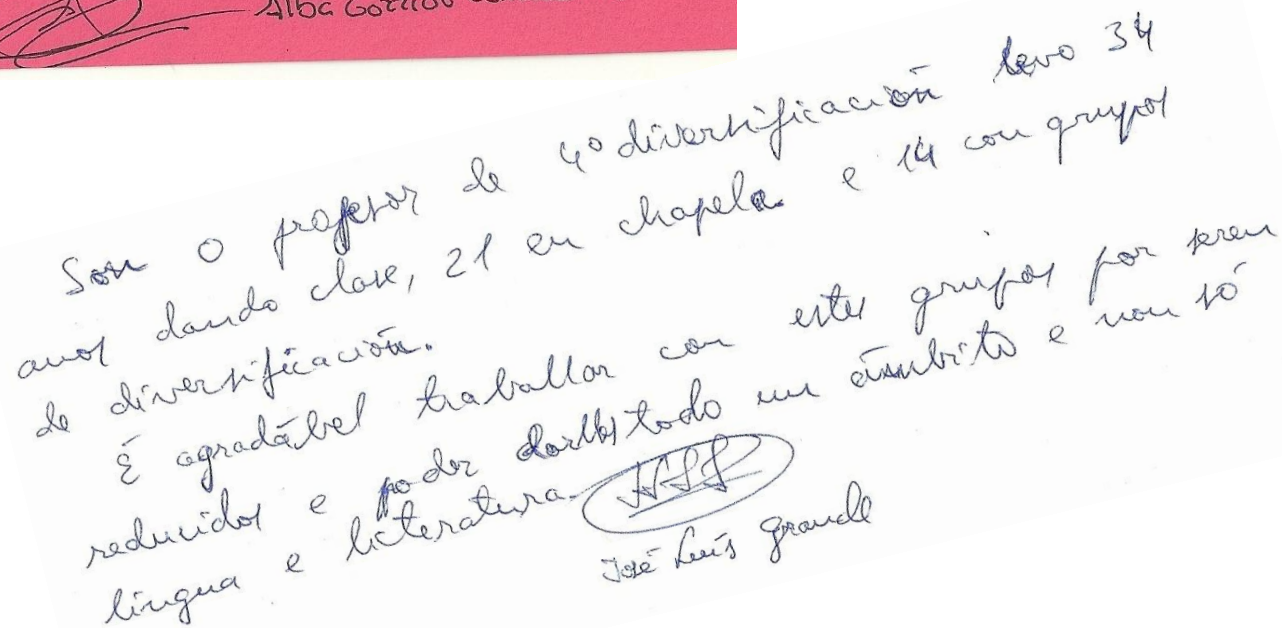 Alba
Son o profesor de 4º diversificación levo 34
anos dando clase, 21 en chapela e 14 con grupos
de diversificación.
É agradábel traballar con estes grupos por seren
reducidos e poder darlles todo un ámbito e non só
lingua e literatura.
José Luís Grande